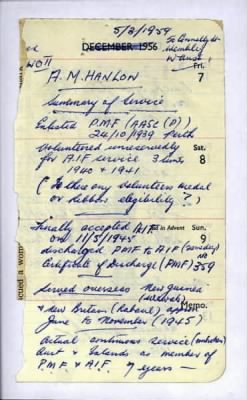 5/2/1959
DECEMBER 1956
50 Connolly St
Wembley
W Aust
Fri.
7
WO II
A. M. HANLON
Summary of Service
Enlisted P.M.F (AASC (P))
24/10/1939 Perth
Volunteered unreservedly
for A.I.F service 3 times
1940 & 1941
Sat.
8
(Is there any volunteers medal
or ribbon eligibility?)
Finally accepted A.I.F
in Advent
Sun.
9
on 11/5/1945
discharged PMF to A.I.F
Certificate of Discharge (PMF) No 359
Served overseas New Guinea
Memo.
& New Britain (Rabaul)
June to November (1945)
Actual continuous service
Aust & Islands as member of
P.M.F. & A.I.F. 7 years —
cued a wom